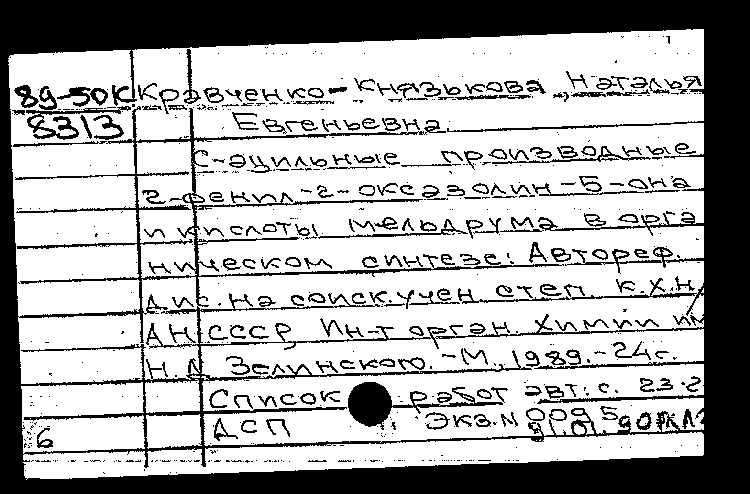 89-50К Кравченко-Князькова, Наталья
8313 Евгеньевна.
С-ацильные производные
2-фенил-2-оксазолин-5-она
и кислоты Мельдрума в орга
ническом синтезе: Автореф.
дис. на соиск. учен. степ. к.х.н.
АН СССР, Ин-т орган. химии им
Н.Д. Зелинского. -М., 1989.-24с.
Список работ авт.: с. 23-2
ДСП Экз. N 0095
6 31.01.90